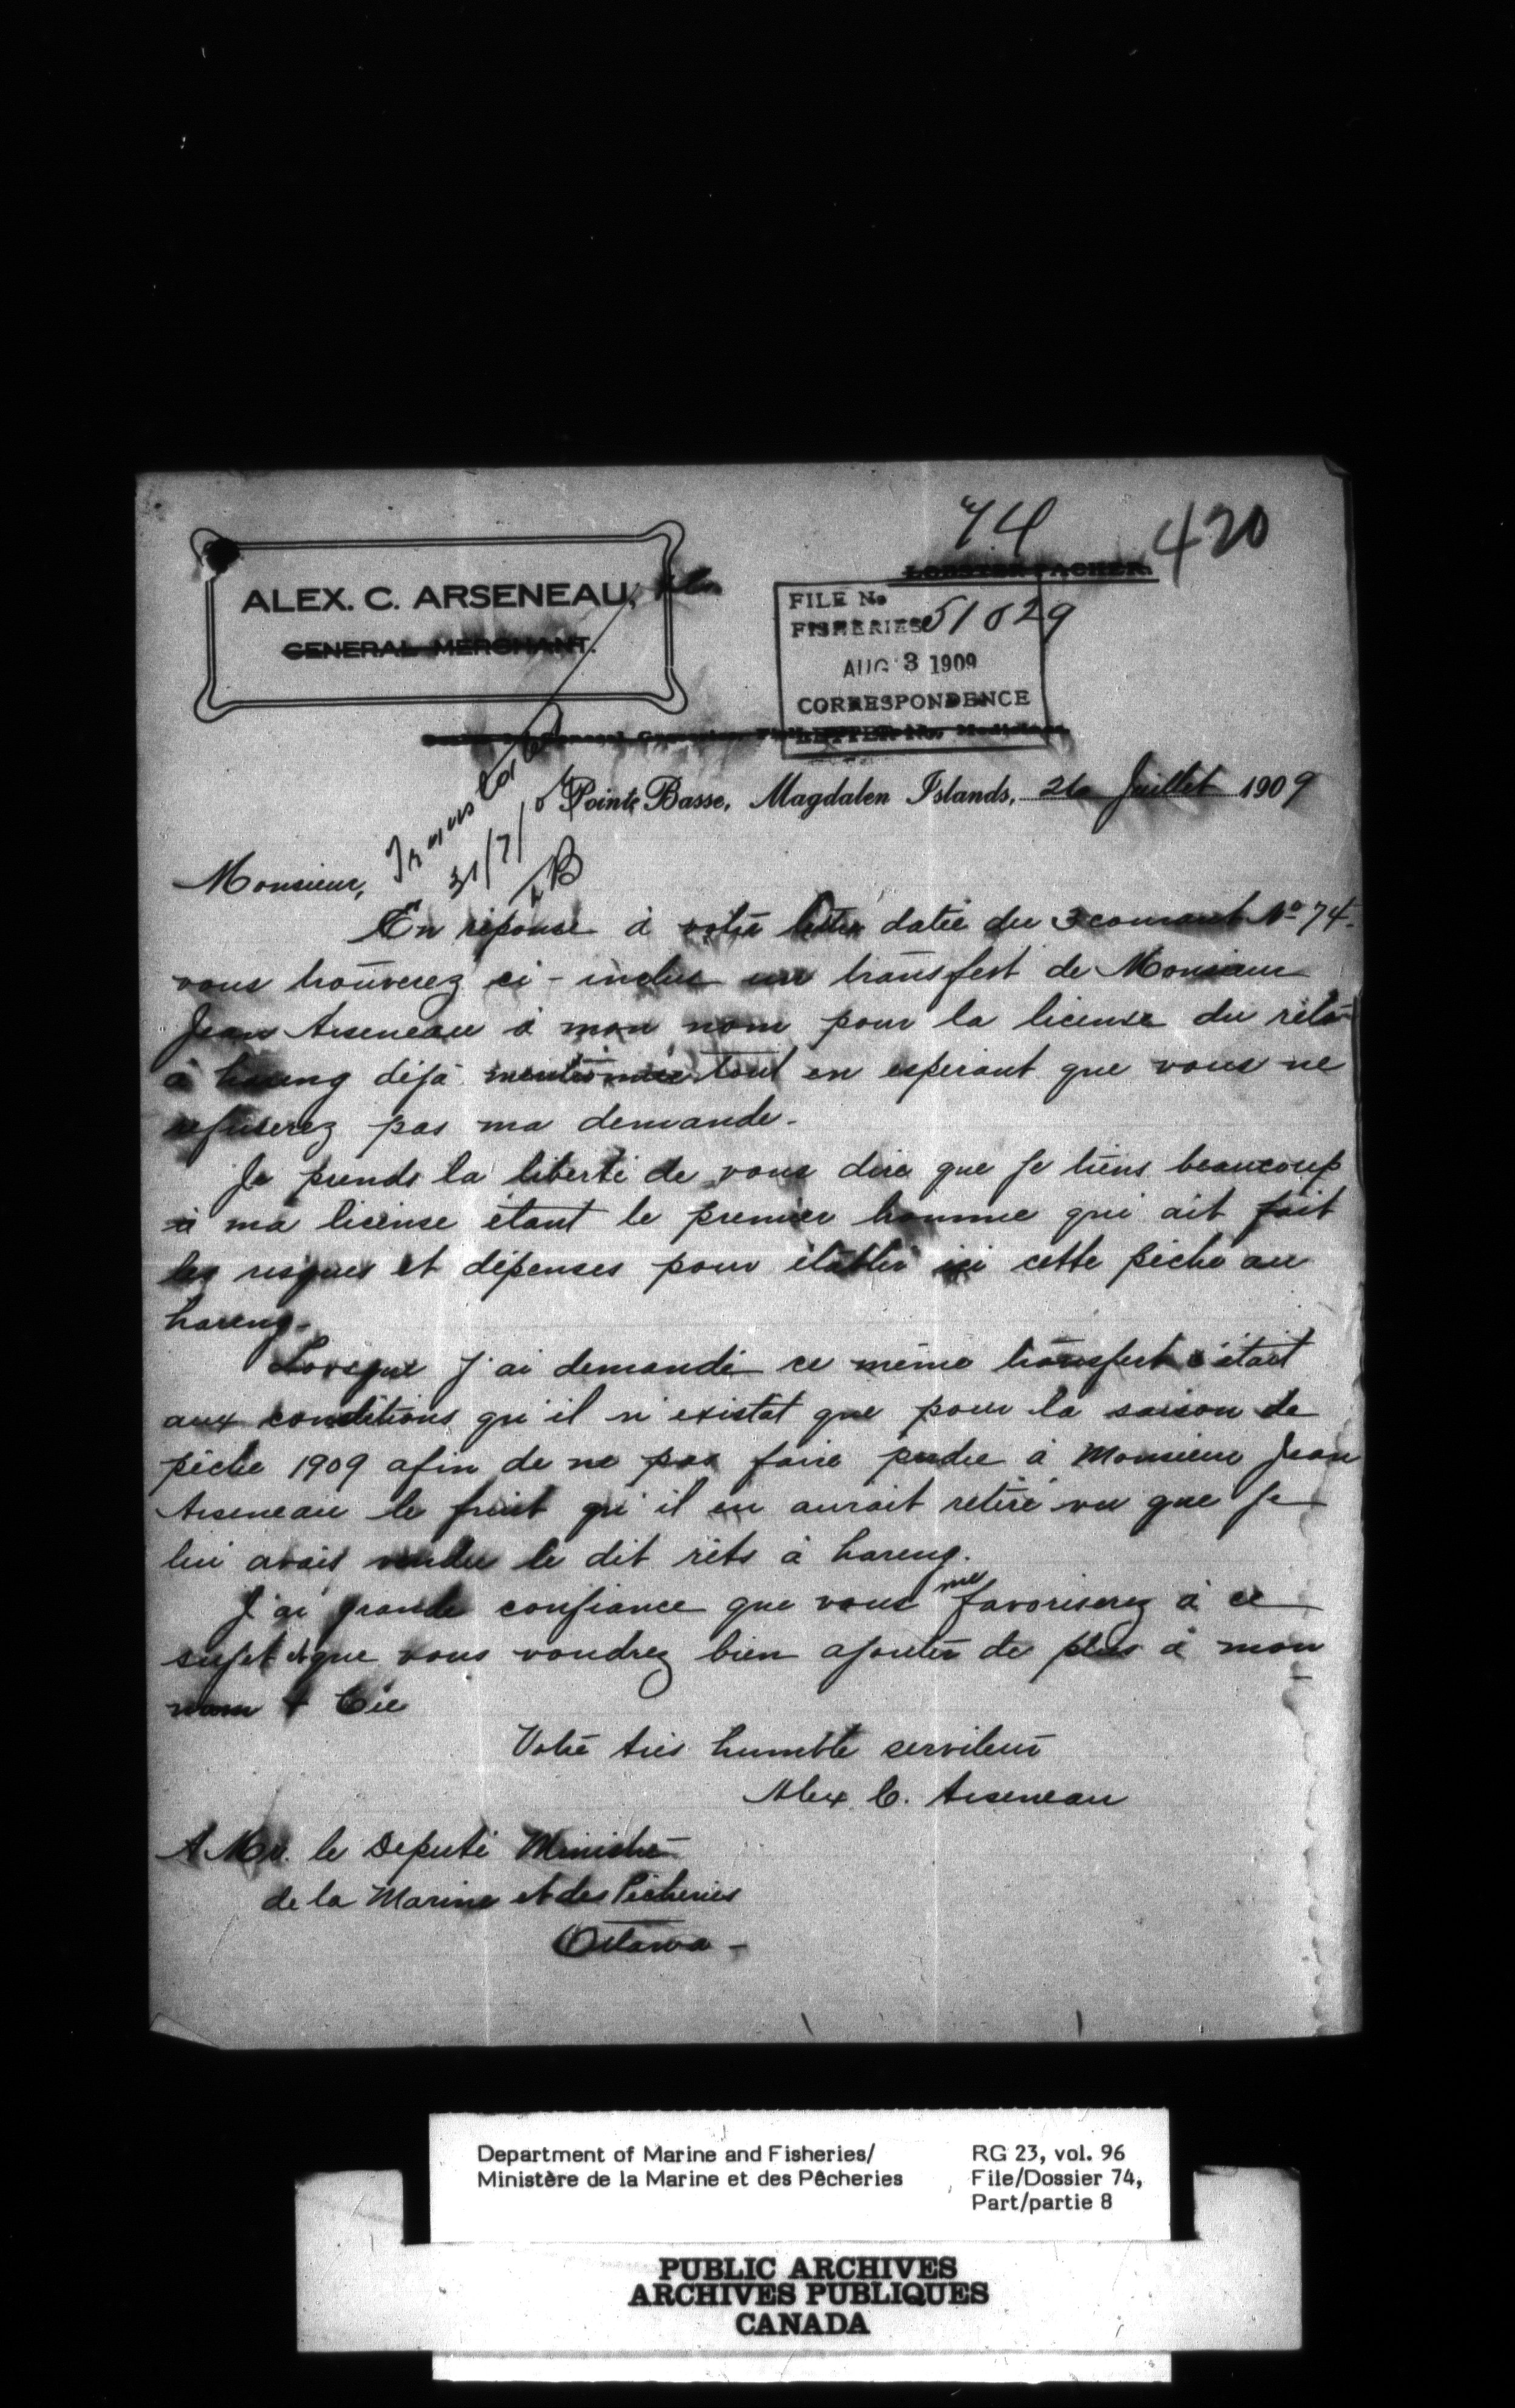 74 420
ALEX. C. ARSENEAU,
GENERAL MERCHANT.
LOBSTER PACKER.
FILE No
FISHERIES 51029
AUG 3 1909
CORRESPONDENCE
LETTER No.
Pointe Basse, Magdalen Islands, 26 Juillet 1909
Translated
31/7/09
Monsieur,
En réponse à votre lettre datée du 3 courant No 74.
vous trouverez ci-inclus un transfert de Monsieur
Jean Arseneau à mon nom pour la license du rêts
à hareng déjà mentionnée tout en esperant que vous ne
refuserez pas ma demande.
Je prends la liberté de vous dire que je tiens beaucoup
à ma license étant le premier homme qui ait fait
les risques et dépenses pour établir ici cette pêche au
hareng.
Lorsque j'ai demandé ce même transfert c'était
aux conditions qu'il n'existat que pour la saison de
pêche 1909 afin de ne pas faire perdre à Monsieur Jean
Arseneau le fruit qu'il en aurait retiré vu que je
lui avais vendu le dit rêts à hareng.
J'ai grande confiance que vous me favoriserez à ce
sujet et que vous voudrez bien ajouter de plus à mon
nom + Cie
Votre très humble serviteur
Alex. C. Arseneau
A Mr. le Deputé Ministre
de la Marine et des Pêcheries
Ottawa -
Department of Marine and Fisheries/
Ministère de la Marine et des Pêcheries
RG 23, vol. 96
File/Dossier 74,
Part/partie 8
PUBLIC ARCHIVES
ARCHIVES PUBLIQUES
CANADA